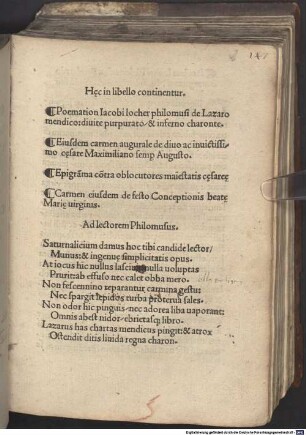 147
Hęc in libello continentur.
¶Poemation Iacobi locher philomusi de Lazaro
mendico:diuite purpurato/& inferno charonte.
¶Eiusdem carmen augurale de diuo ac inuictissi-
mo cęsare Maximiliano semp Augusto.
¶Epigrāma cōtra oblocutores maiestatis cęsareę
¶Carmen eiusdem de festo Conceptionis beatę
Marię uirginis.
Ad lectorem Philomusus.
Saturnalicium damus hoc tibi candide lector/
Munus:& ingenuę simplicitatis opus.
At iocus hic nullus lasciuit:nulla uoluptas
Prurit:ab effuso nec calet obba mero.
Non fescennino reparantur carmina gestu:
Nec spargit lepidos turba proterua sales.
Non odor hic pinguis:nec adorea liba uaporant:
Omnis abest nidor:ebrietasq; libro.
Lazarus has chartas mendicus pingit:& atrox
Ostendit ditis liuida regna charon.
5
Digitalisierung gefördert durch die Deutsche Forschungsgemeinschaft
DFG